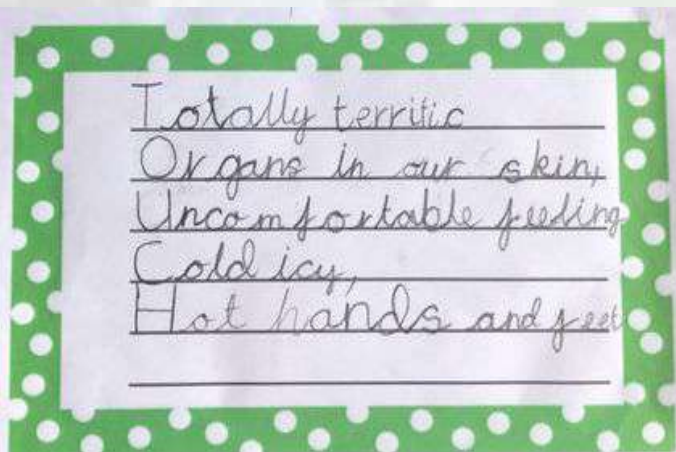 Totally territic
Organs in our skin,
Uncomfortable feeling
Cold icy,
Hot hands and feet